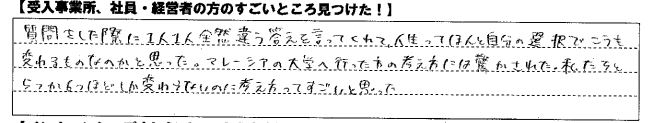 【受入事業所、社員・経営者の方のすごいところ見つけた！】
質問をした際に1人1人全然違う答えを言ってくれて、人生ってほんと自分の選択でこうも
変わるものなのかと思った。マレーシアの大学へ行った方の考え方には驚かされた。私たちと
5つか6つほどしか変わらないのに考え方ってすごいと思った